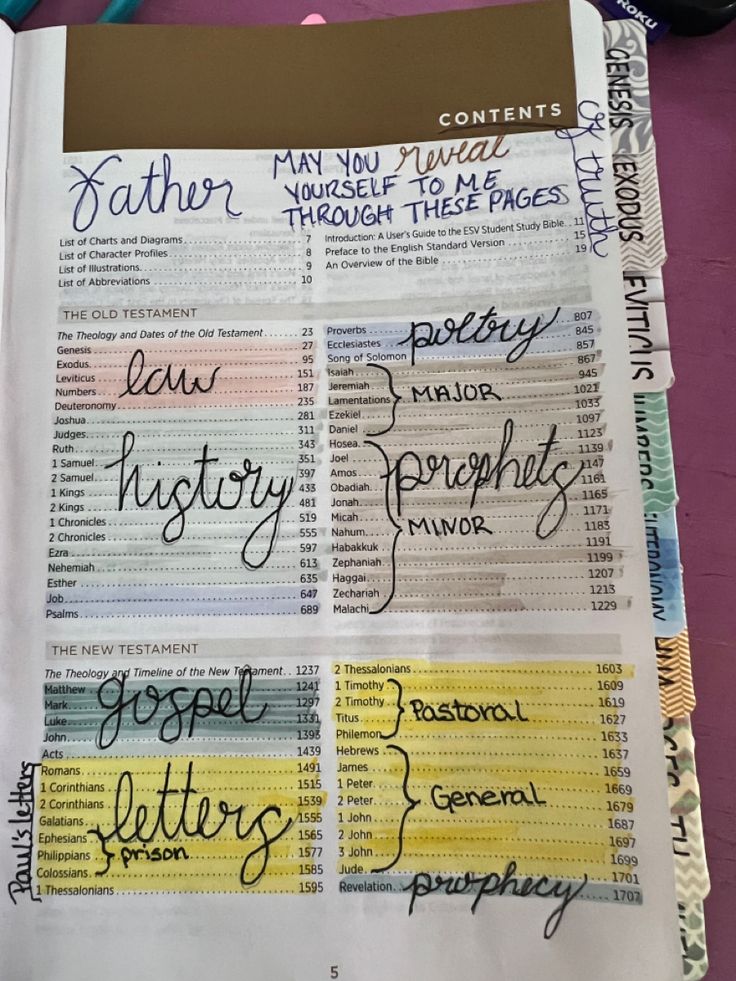 ROKU
CONTENTS
Father
MAY YOU reveal
YOURSELF TO ME
THROUGH THESE PAGES
of truth
List of Charts and Diagrams 7
List of Character Profiles 8
List of Illustrations 9
List of Abbreviations 10
Introduction: A User's Guide to the ESV Student Study Bible 11
Preface to the English Standard Version 15
An Overview of the Bible 19
THE OLD TESTAMENT
The Theology and Dates of the Old Testament 23
Genesis 27
Exodus 95
Leviticus 151
Numbers 187
Deuteronomy 235
law
Joshua 281
Judges 311
Ruth 343
1 Samuel 351
2 Samuel 397
1 Kings 433
2 Kings 481
1 Chronicles 519
2 Chronicles 555
Ezra 597
Nehemiah 613
Esther 635
history
Job 647
Psalms 689
Proverbs 807
Ecclesiastes 845
Song of Solomon 857
poetry
Isaiah 867
Jeremiah 945
Lamentations 1021
Ezekiel 1033
Daniel 1097
MAJOR
Hosea 1123
Joel 1139
Amos 1147
Obadiah 1161
Jonah 1165
Micah 1171
Nahum 1183
Habakkuk 1191
Zephaniah 1199
Haggai 1207
Zechariah 1213
Malachi 1229
prophets
MINOR
THE NEW TESTAMENT
The Theology and Timeline of the New Testament 1237
Matthew 1241
Mark 1297
Luke 1331
John 1393
gospel
Acts 1439
Romans 1491
1 Corinthians 1515
2 Corinthians 1539
Galatians 1555
Ephesians 1565
Philippians 1577
Colossians 1585
1 Thessalonians 1595
letters
prison
Paul's letters
2 Thessalonians 1603
1 Timothy 1609
2 Timothy 1619
Titus 1627
Philemon 1633
Pastoral
Hebrews 1637
James 1659
1 Peter 1669
2 Peter 1679
1 John 1687
2 John 1697
3 John 1699
Jude 1701
General
Revelation 1707
prophecy
5
GENESIS
EXODUS
EVITICUS
UMBERS
UTERONOMY